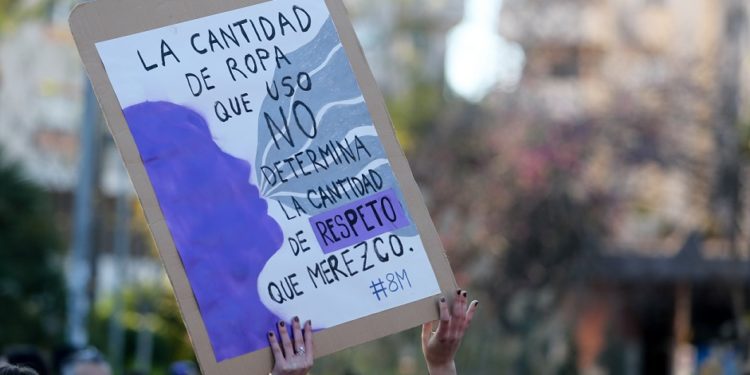 LA CANTIDAD
DE ROPA
QUE USO
NO
DETERMINA
LA CANTIDAD
DE RESPETO
QUE MEREZCO.
#8M